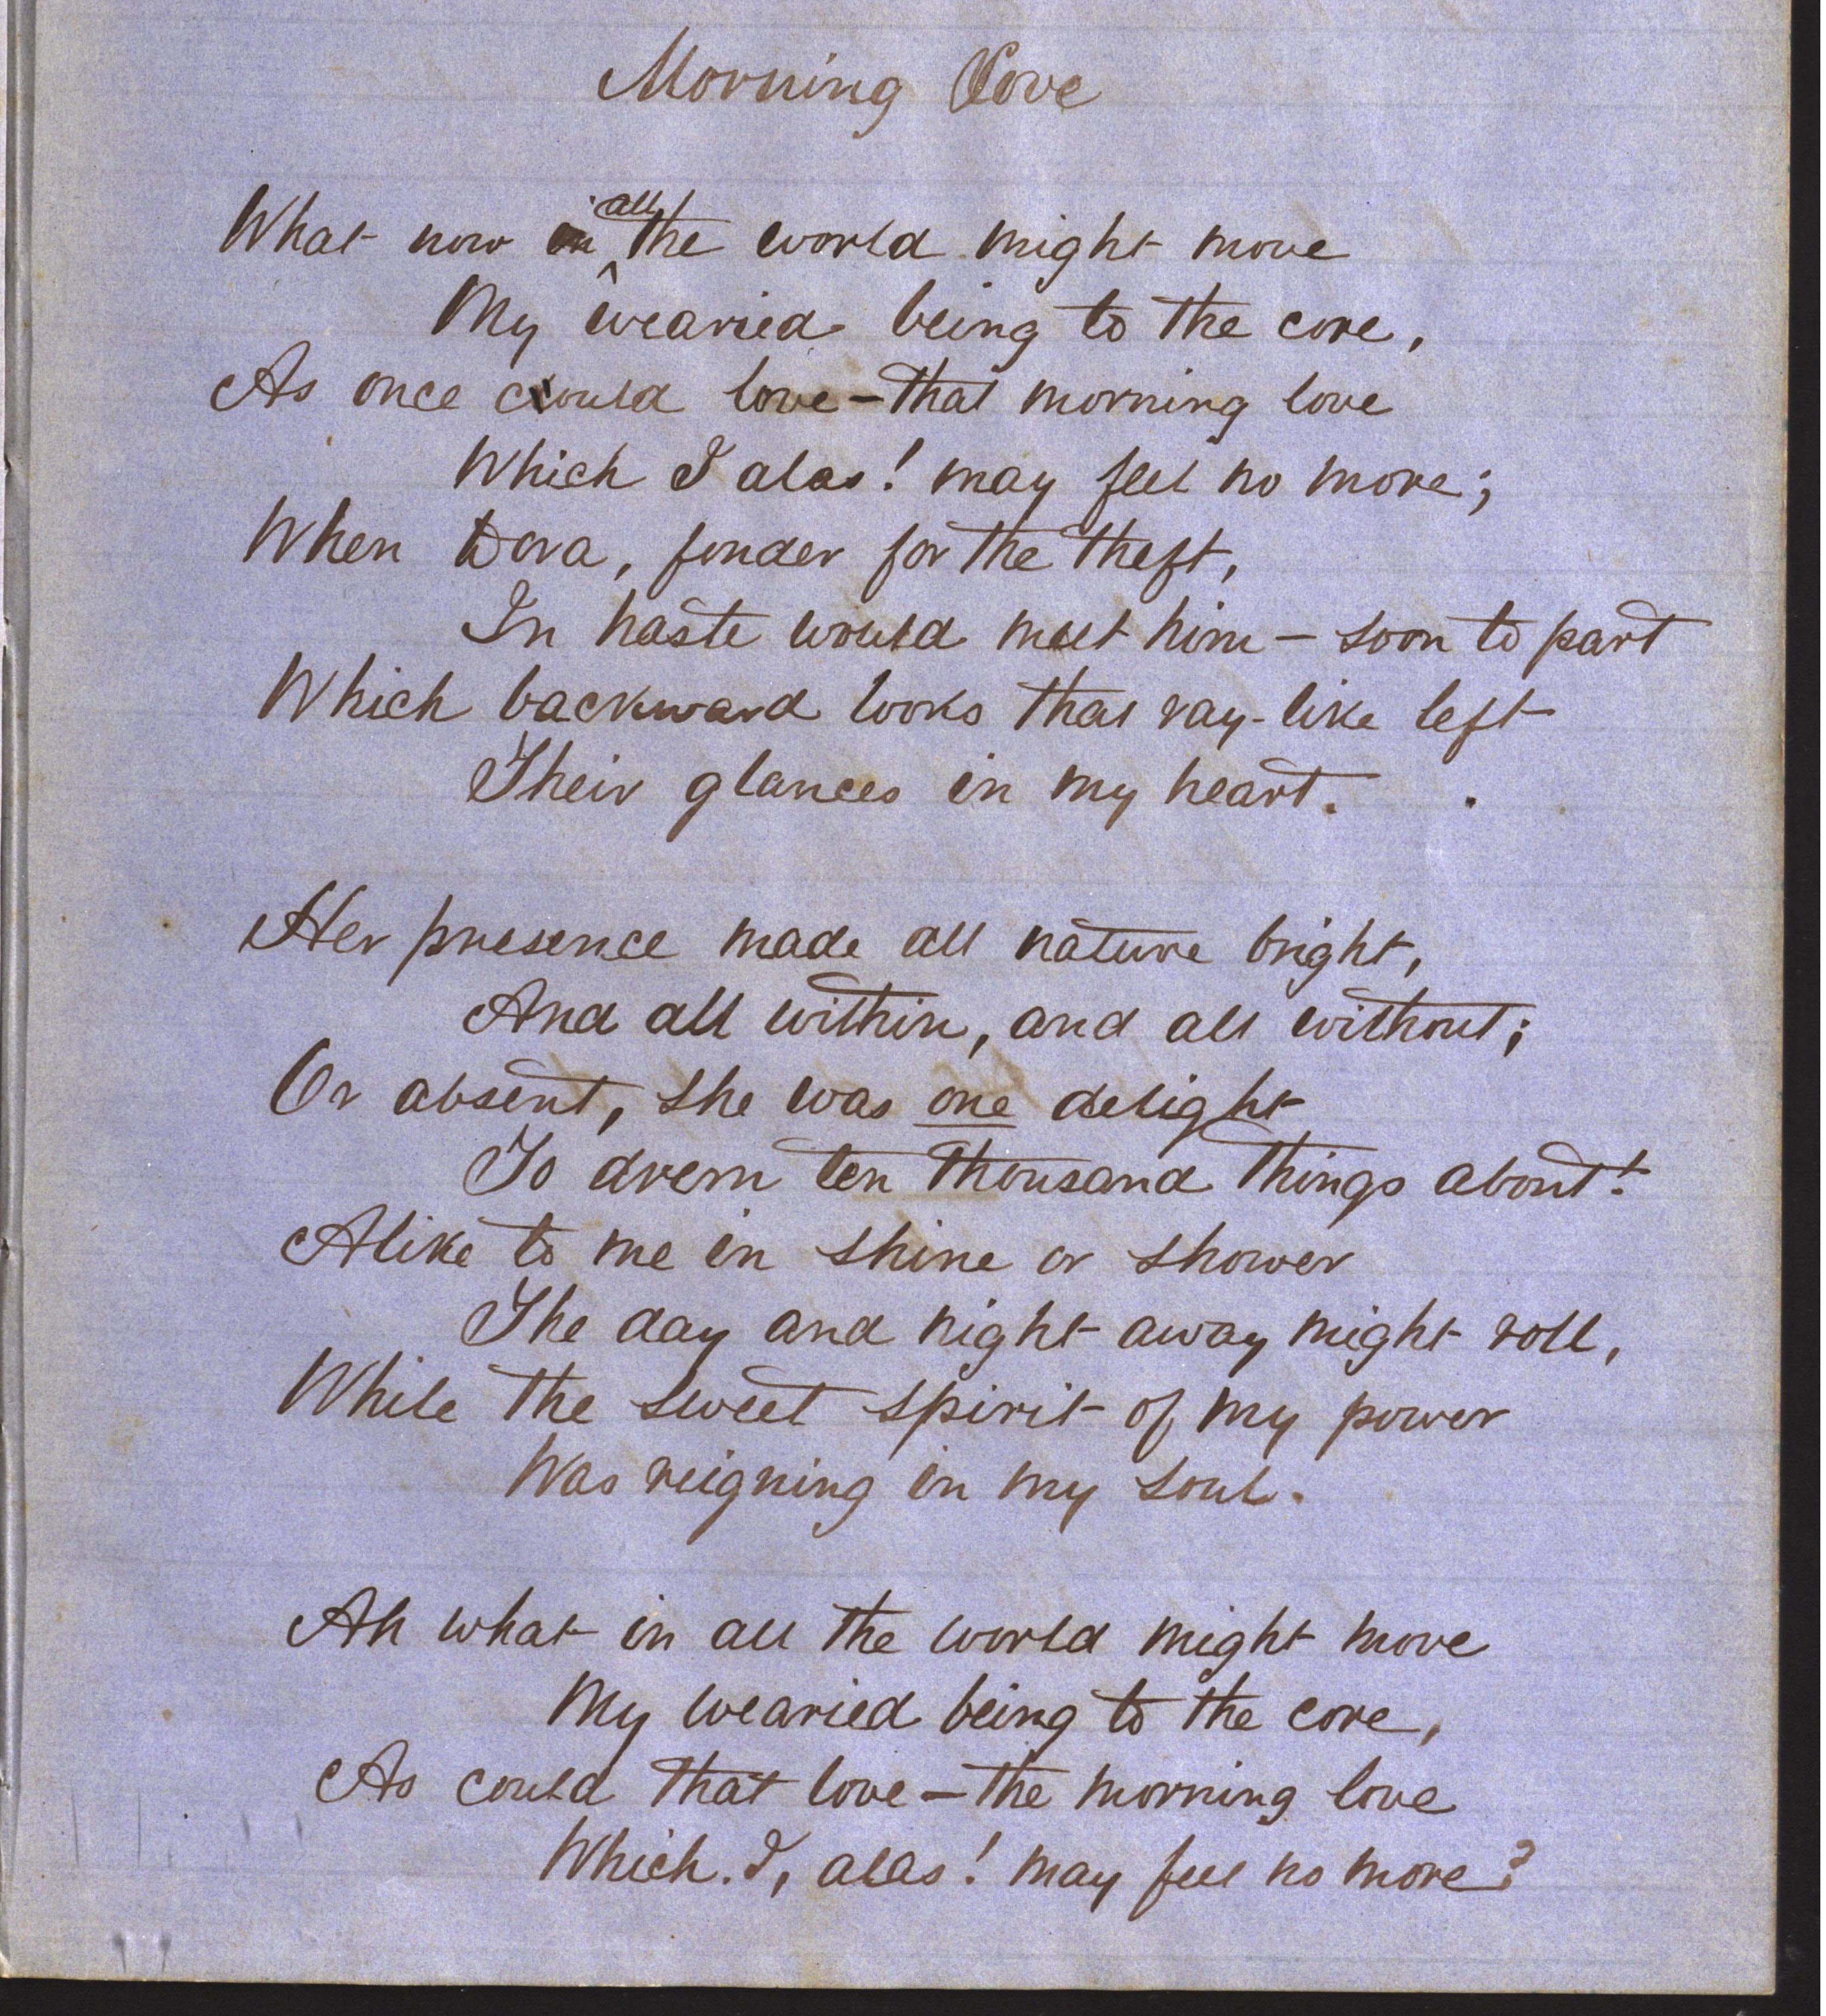 Morning Love
What now in all the world might move
My wearied being to the core,
As once could love – that morning love
Which I alas! may feel no more;
When Dora, fonder for the theft,
In haste would meet him – soon to part
Which backward looks that ray-like left
Their glances in my heart.
Her presence made all nature bright,
And all within, and all without;
Or absent, she was one delight
To drem ten thousand things about!
Alike to me in shine or shower
The day and night away might roll,
While the sweet spirit of my power
Was reigning in my soul.
Ah what in all the world might move
My wearied being to the core,
As could that love – the morning love
Which I, alas! may feel no more?